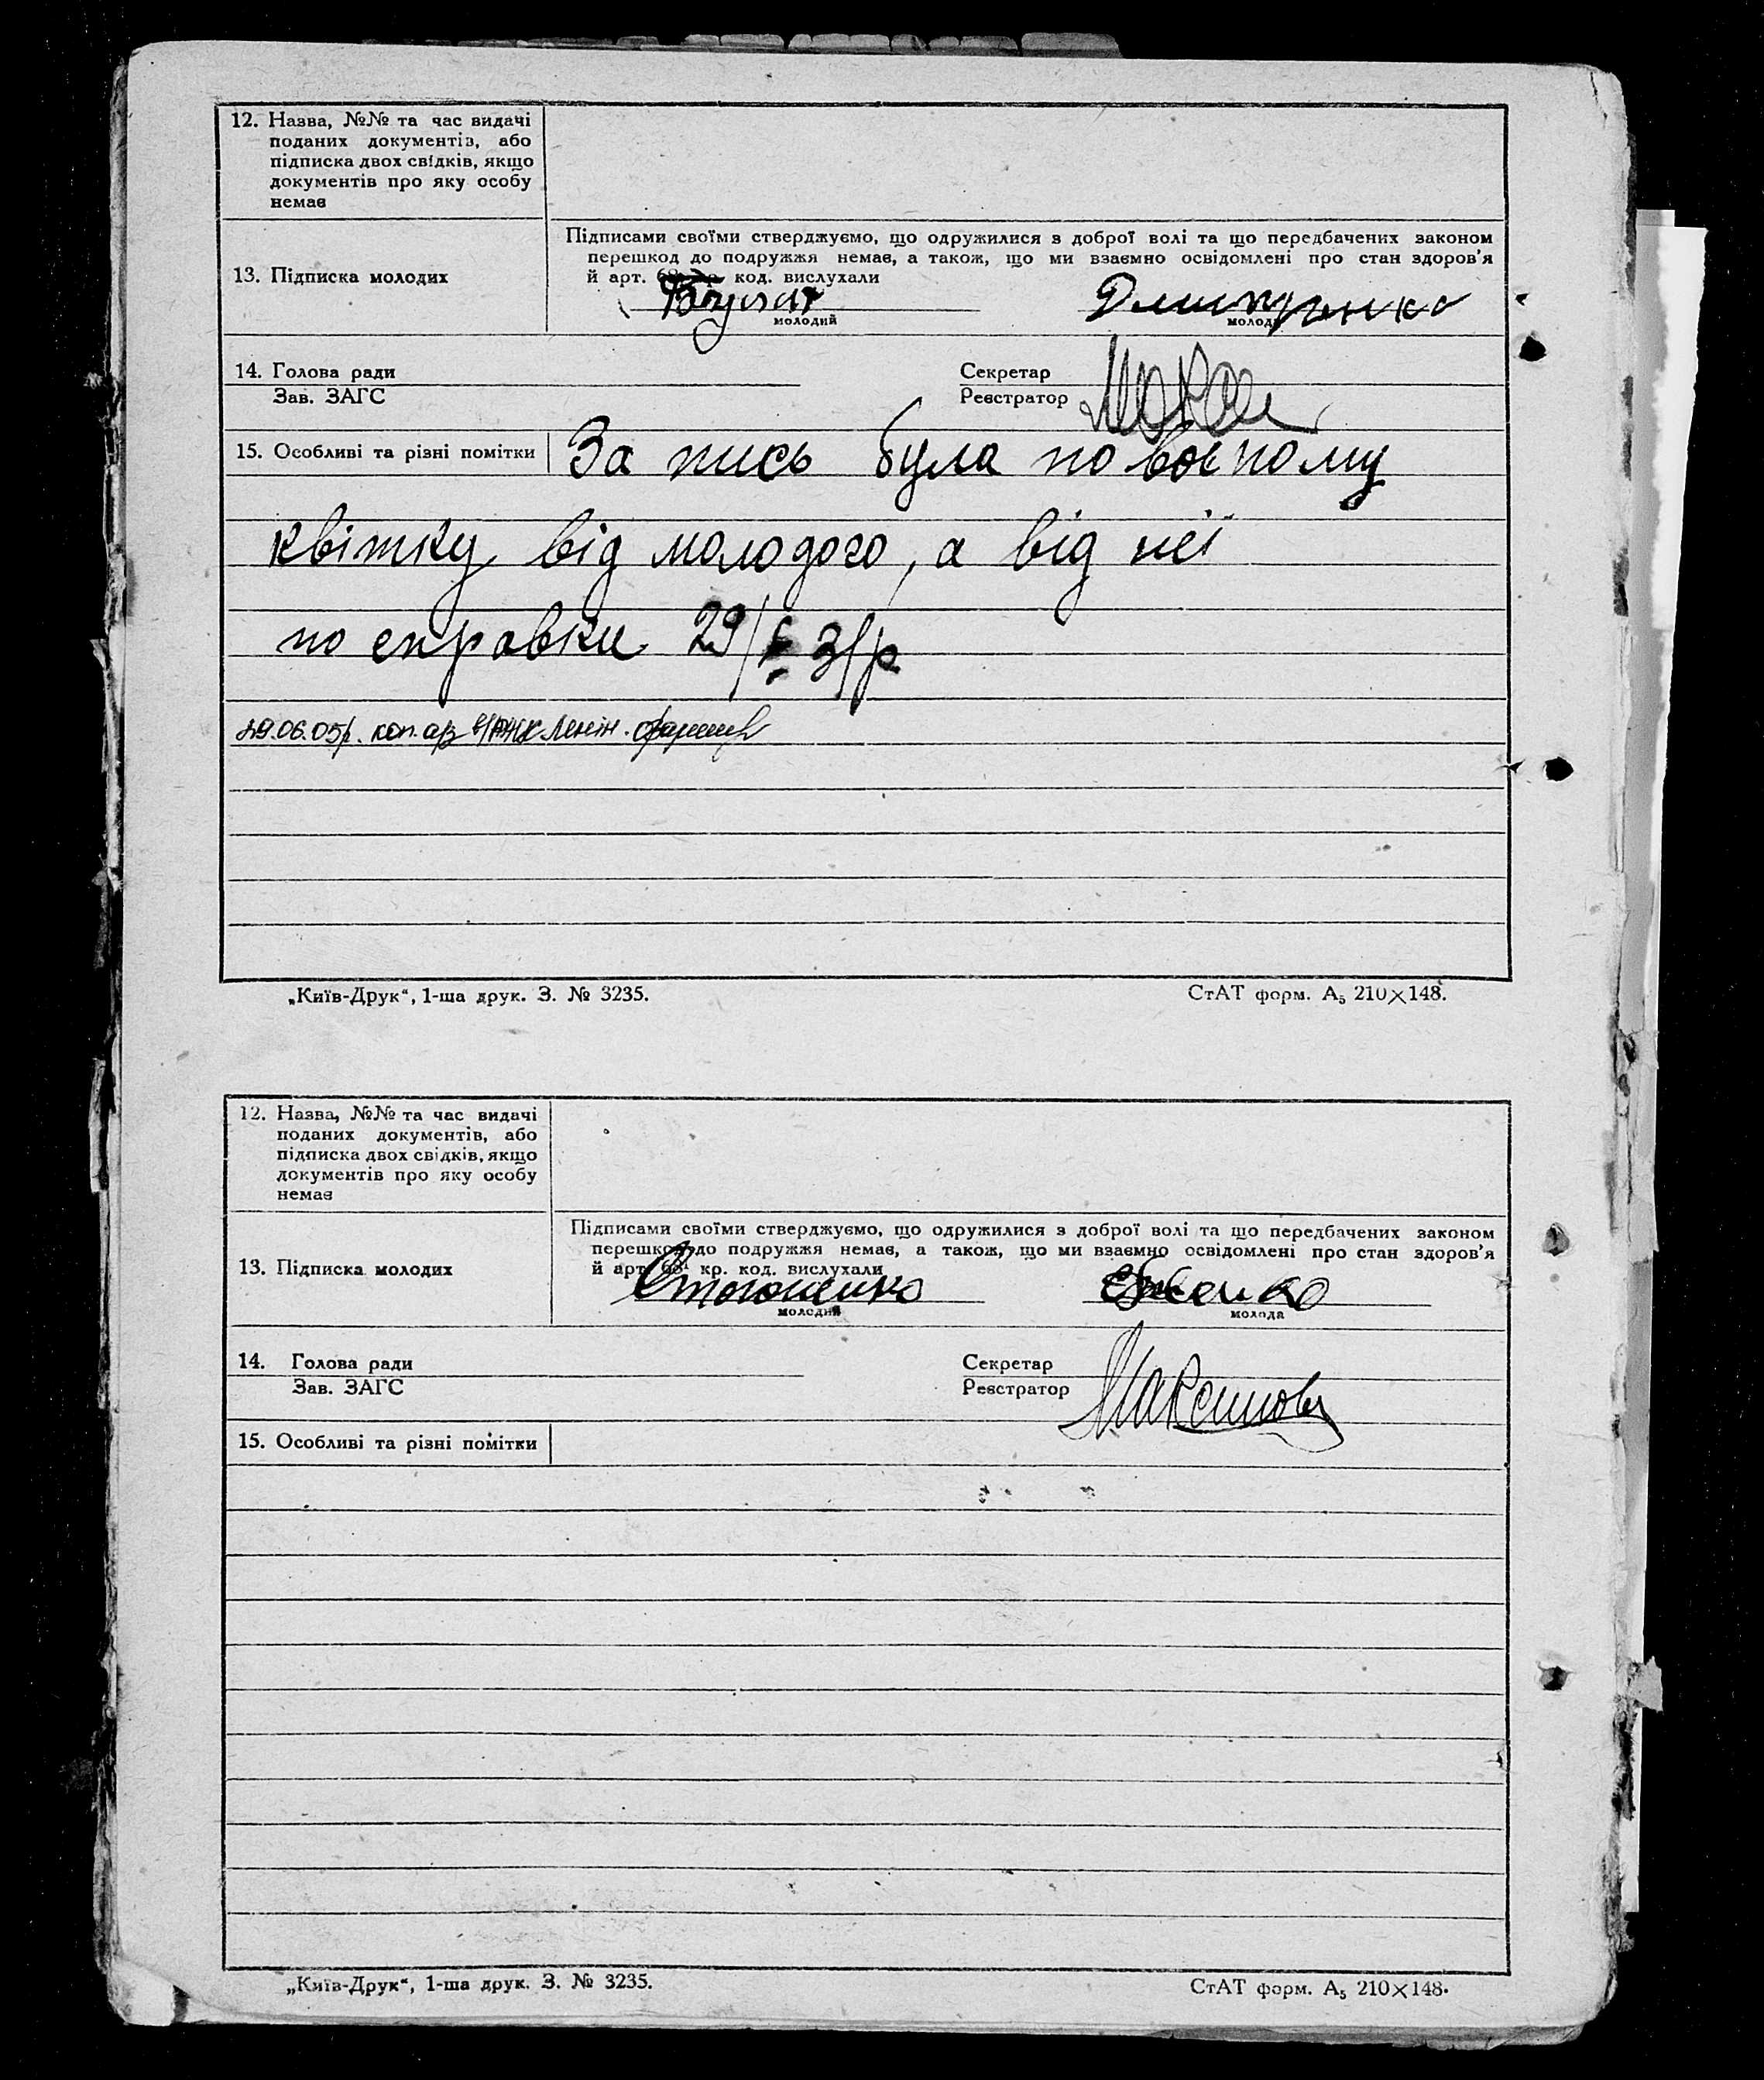 12. Назва, №№ та час видачі
поданих документів, або
підписка двох свідків, якщо
документів про яку особу
немає
Підписами своїми стверджуємо, що одружилися з доброї волі та що передбачених законом
перешкод до подружжя немає, а також, що ми взаємно освідомлені про стан здоров'я
13. Підписка молодих
й арт. код. вислухали
Дмитренко
молодий
14. Голова ради
Секретар
Зав. ЗАГС
Реєстратор
15. Особливі та різні помітки
За пись була по воєному
квітку від молодого, а від неї
по справки 29/ 31р
29.06.05р. коп. аз Ленін.
„Київ-Друк“, 1-ша друк. З. № 3235.
СтАТ форм. А₅ 210×148.
12. Назва, №№ та час видачі
поданих документів, або
підписка двох свідків, якщо
документів про яку особу
немає
Підписами своїми стверджуємо, що одружилися з доброї волі та що передбачених законом
перешкод до подружжя немає, а також, що ми взаємно освідомлені про стан здоров'я
13. Підписка молодих
й арт. 68¹ кр. код. вислухали
молодий
молода
14. Голова ради
Секретар
Зав. ЗАГС
Реєстратор
Максимова
15. Особливі та різні помітки
„Київ-Друк“, 1-ша друк. З. № 3235.
СтАТ форм. А₅ 210×148.